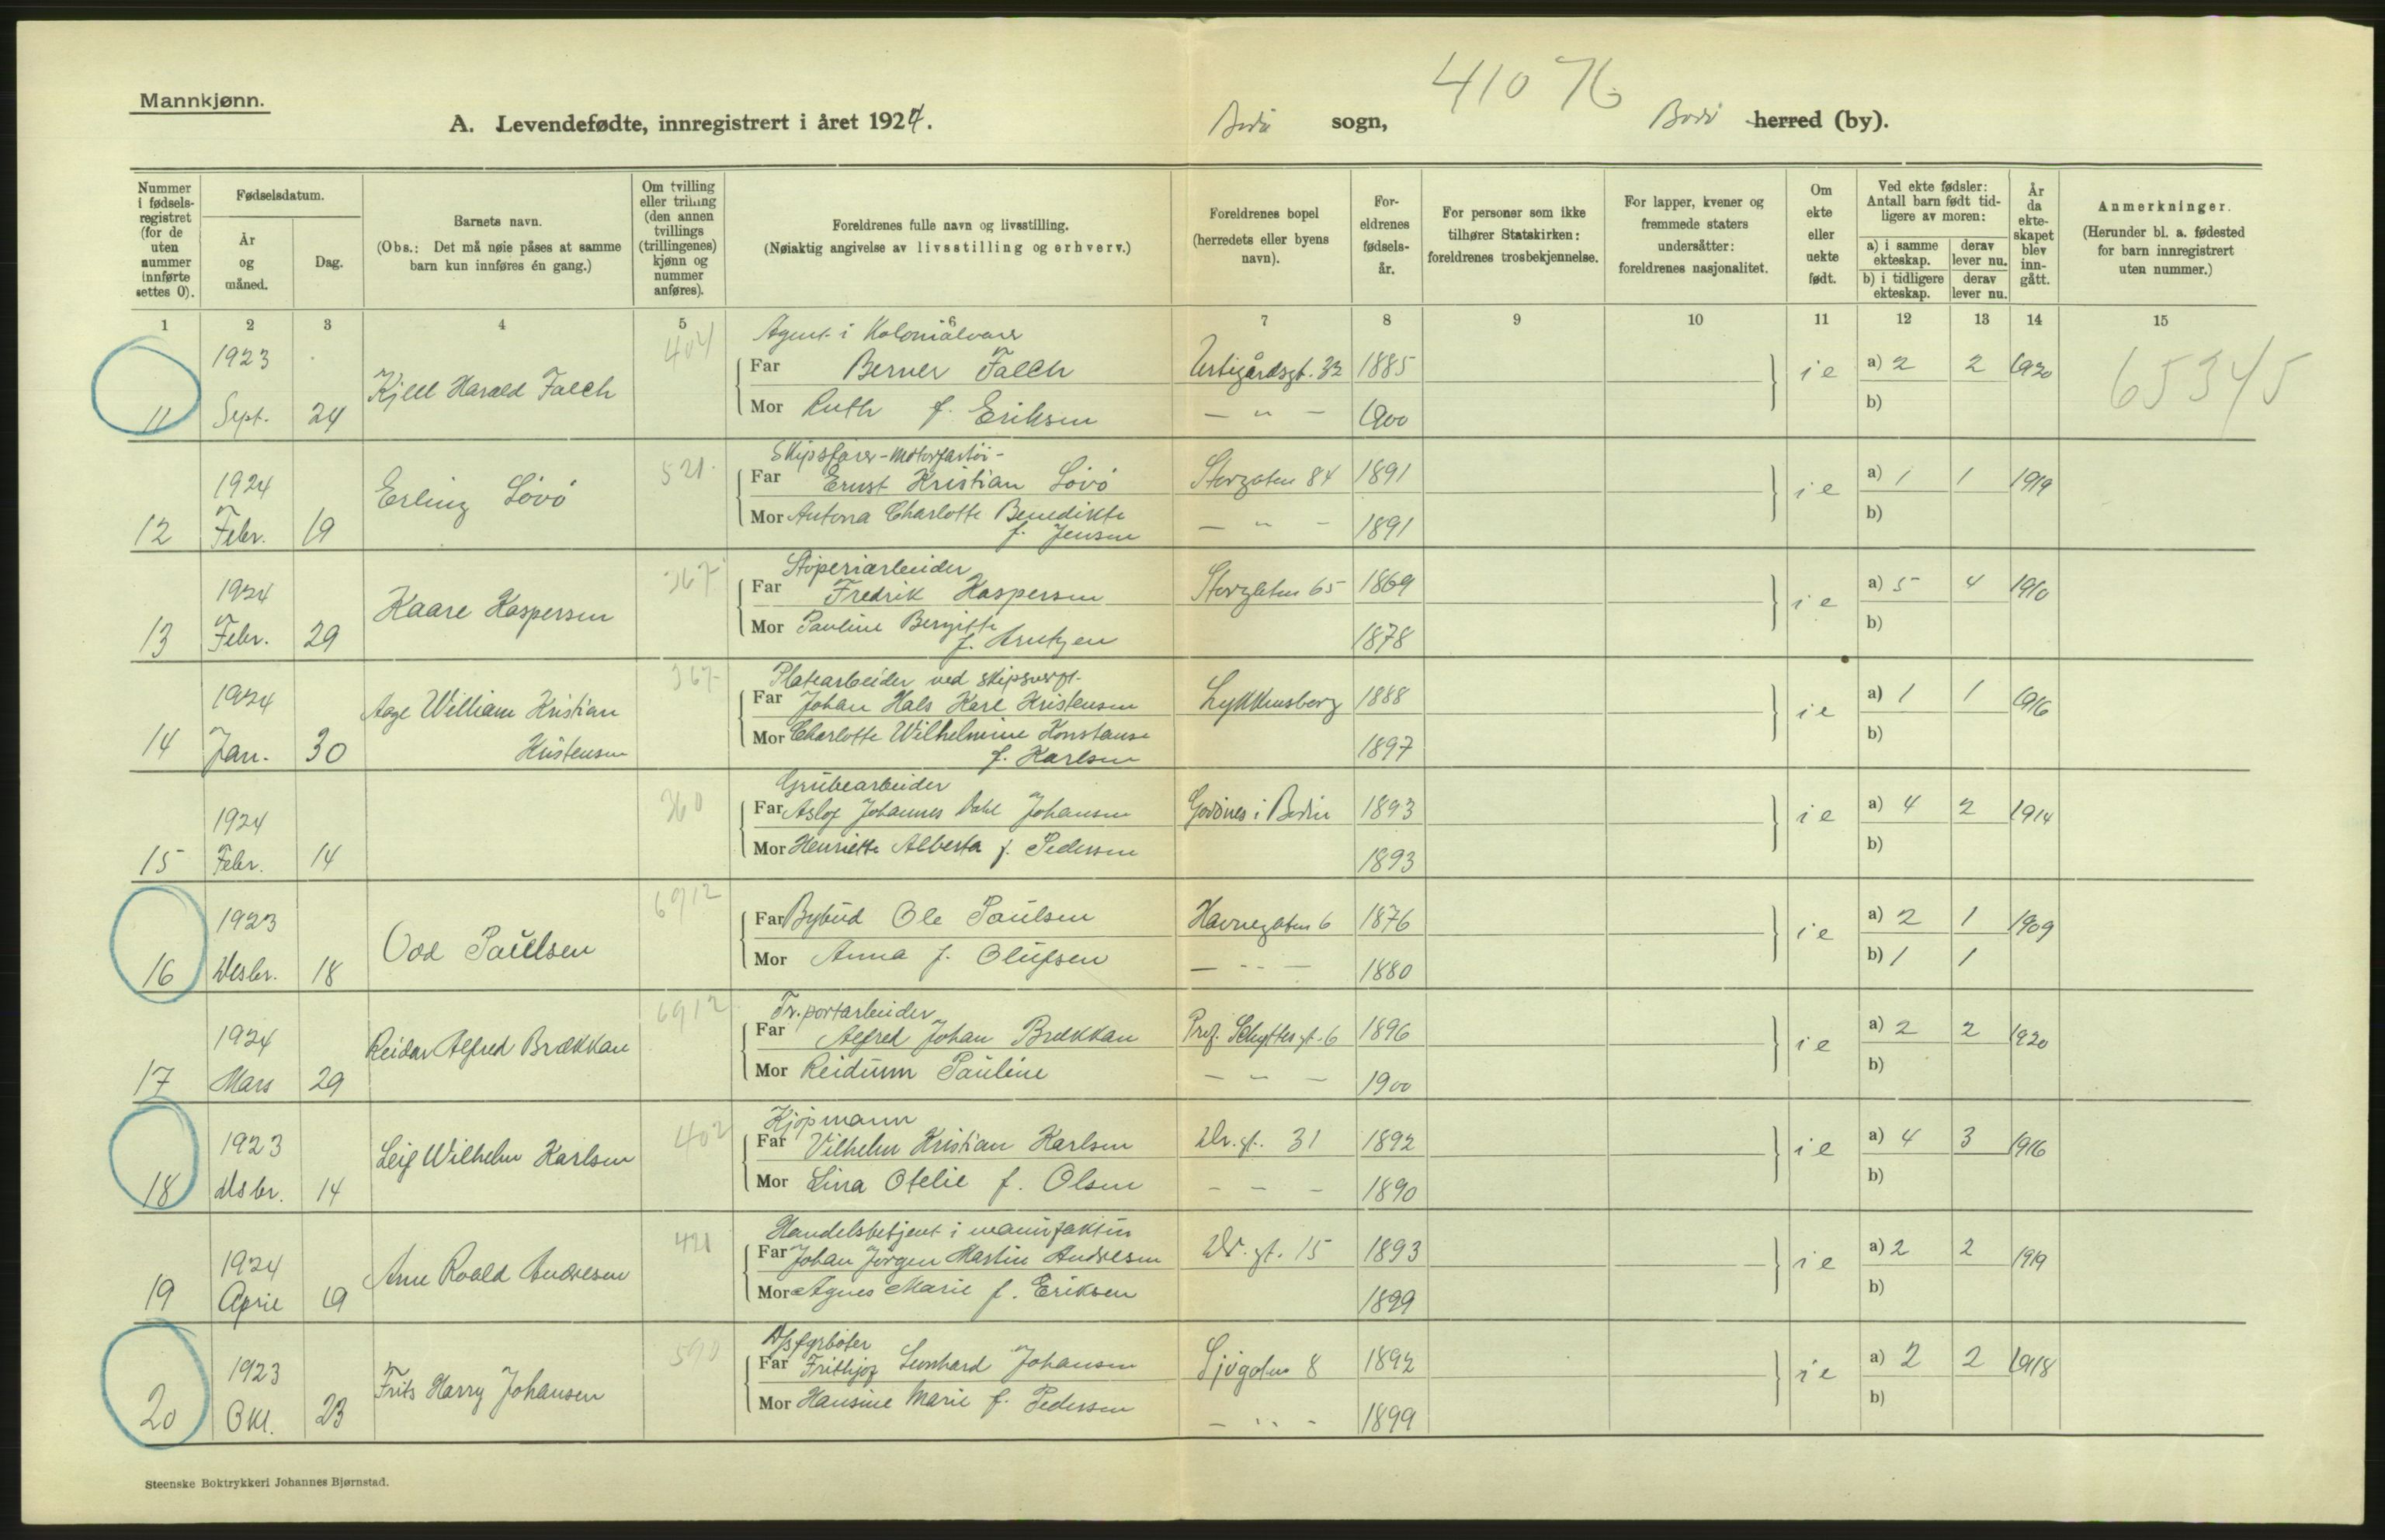 Mannkjønn.
41076
A. Levendefødte, innregistrert i året 1924. Bodø sogn, Bodø herred (by).
Nummer i fødselsregistret (for de uten nummer innførte settes 0).
Fødselsdatum.
År og måned.
Dag.
Barnets navn.
(Obs.: Det må nøie påses at samme barn kun innføres én gang.)
Om tvilling eller trilling (den annen tvillings (trillingenes) kjønn og nummer anføres).
Foreldrenes fulle navn og livsstilling.
(Nøiaktig angivelse av livsstilling og erhverv.)
Foreldrenes bopel (herredets eller byens navn).
Foreldrenes fødselsår.
For personer som ikke tilhører Statskirken: foreldrenes trosbekjennelse.
For lapper, kvener og fremmede staters undersåtter: foreldrenes nasjonalitet.
Om ekte eller uekte født.
Ved ekte fødsler: Antall barn født tidligere av moren:
a) i samme ekteskap. derav lever nu.
b) i tidligere ekteskap. derav lever nu.
År da ekteskapet blev inngått.
Anmerkninger.
(Herunder bl. a. fødested for barn innregistrert uten nummer.)
1 2 3 4 5 6 7 8 9 10 11 12 13 14 15
11 1923 Sept. 24 Kjell Harald Falch 404
Agent i Kolonialvarer
Far Berner Falch 32 1885 i e a) 2 2 1920 65345
Mor Ruth f. Eriksen — " — 1900 b)
12 1924 Febr. 19 Erling Løvø 521
Skipsfører - Motorfartøi -
Far Ernst Kristian Løvø Storgaten 84 1891 i e a) 1 1 1919
Mor Antona Charlotte Benedikte
f. Jensen — " — 1891 b)
13 1924 Febr. 29 Kaare Kaspersen 367
Støperiarbeider
Far Fredrik Kaspersen Storgaten 65 1869 i e a) 5 4 1910
Mor Pauline Bergitte
f. Arntzen 1878 b)
14 1924 Jan. 30 Aage William Kristian
Kristensen 367
Platearbeider ved skipsverft.
Far Johan Hals Karl Kristensen Lykkensborg 1888 i e a) 1 1 1916
Mor Charlotte Wilhelmine Konstanse
f. Karlsen 1897 b)
15 1924 Febr. 14 360
Grubearbeider
Far Aslof Johannes Dahl Johansen Godønes i Bodin 1893 i e a) 4 2 1914
Mor Henriette Alberta f. Pedersen 1893 b)
16 1923 Desbr. 18 Odd Paulsen 6912
Far Bybud Ole Paulsen Havnegaten 6 1876 i e a) 2 1 1909
Mor Anna f. Olufsen — " — 1880 b) 1 1
17 1924 Mars 29 Reidar Alfred Brækkan 6912
Tr.portarbeider
Far Alfred Johan Brækkan Prof. Schyttes gt. 6 1896 i e a) 2 2 1920
Mor Reidunn Pauline — — — 1900 b)
18 1923 Desbr. 14 Leif Wilhelm Karlsen 402
Kjøpmann
Far Vilhelm Kristian Karlsen Dr. gt. 31 1892 i e a) 4 3 1916
Mor Lina Otelie f. Olsen — — — 1890 b)
19 1924 April 19 Arne Roald Andresen 421
Handelsbetjent i manufaktur
Far Johan Jørgen Martin Andresen Dr. gt. 15 1893 i e a) 2 2 1919
Mor Agnes Marie f. Eriksen 1899 b)
20 1923 Okt. 23 Frits Harry Johansen 590
Dpsfyrbøter
Far Frithjof Leonhard Johansen Sjøgaten 8 1892 i e a) 2 2 1918
Mor Hansine Marie f. Pedersen — " — 1899 b)
Steenske Boktrykkeri Johannes Bjørnstad.